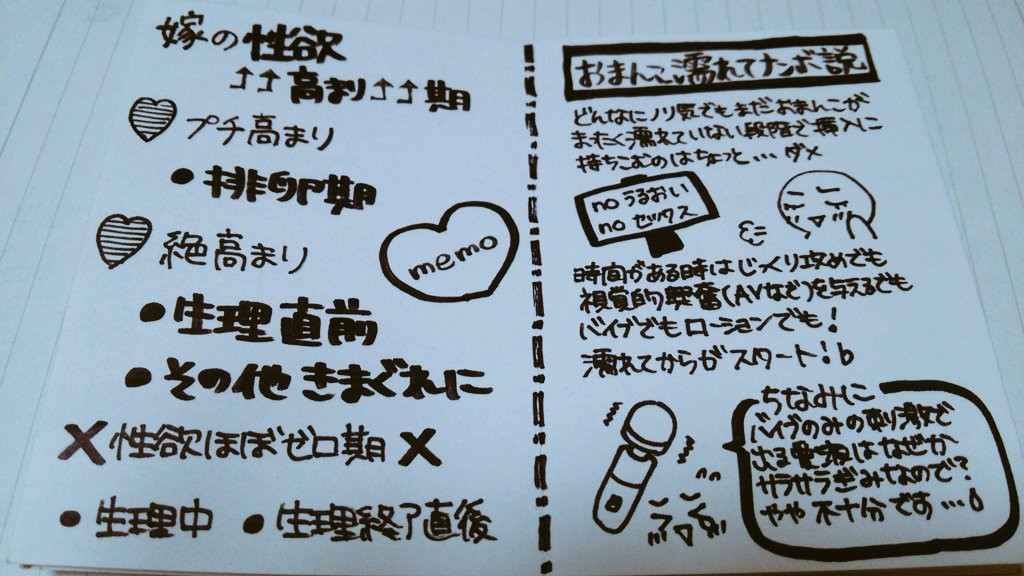 嫁の性欲
↑↑高まり↑↑期
プチ高まり
・排卵期
絶高まり
・生理直前
・その他きまぐれに
×性欲ほぼゼロ期×
・生理中 ・生理終了直後
memo
おまんこ濡れてナンボ説
どんなにノリ気でもまだおまんこが
まったく濡れていない段階で挿入に
持ちこむのはちょっと…ダメ
no うるおい
no セックス
時間がある時はじっくり攻めでも
視覚的興奮(AVなど)を与えるでも
バイブでもローションでも!
濡れてからがスタート!
ちなみに
バイブのみの刺激で
出る愛液はなぜか
サラサラぎみなので?
やや不十分です…